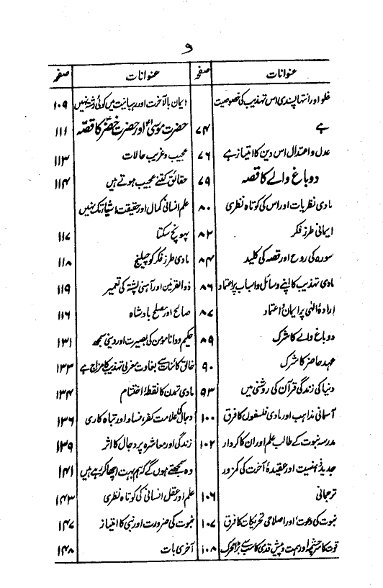 و
عنوانات صفحہ
غلو اور انتہا پسندی اس تہذیب کی خصوصیت
ہے ۷۴
عدل و اعتدال اس دین کا امتیاز ہے ۷۶
دو باغ والے کا قصہ ۷۹
مادی نظریات اور اس کی کوتاہ نظری ۸۰
ایمانی طرز فکر ۸۲
سورہ کی روح اور قصہ کی کلید ۸۴
مادی تہذیب کا اپنے وسائل و اسباب پر اعتماد ۸۶
ارادۂ الٰہی پر ایمان و اعتماد ۸۷
دو باغ والے کا شرک ۸۹
عہد حاضر کا شرک ۹۰
دنیا کی زندگی قرآن کی روشنی میں ۹۳
آسمانی مذاہب اور مادی فلسفوں کا فرق ۱۰۰
مدرسہ نبوت کے طالب علم اور ان کا کردار ۱۰۲
جدید ذہنیت اور عقیدۂ آخرت کی کمزور
ترجمانی ۱۰۶
نبوت کی دعوت اور اصلاحی تحریکات کا فرق ۱۰۷
قوت کا سرچشمہ اور ہمت و پیش قدمی کا سب سے بڑا محرک ۱۰۸
عنوانات صفحہ
ایمان بالآخرت اور رہبانیت میں کوئی رشتہ نہیں ۱۰۹
حضرت موسیٰ اور حضرت خضر کا قصہ ۱۱۱
عجیب و غریب حالات ۱۱۳
حقائق کتنے عجیب ہوتے ہیں ۱۱۴
علم انسانی کمال اور حقیقت اشیا تک نہیں
پہونچ سکتا ۱۱۷
مادی طرز فکر کو چیلنج ۱۱۸
ذوالقرنین اور آہنی پشتہ کی تعمیر ۱۱۹
صالح اور مصلح بادشاہ ۱۱۶
حکیم و دانا مومن کی بصیرت اور دینی سمجھ ۱۳۱
خالق کائنات سے بغاوت مغربی تہذیب کا مزاج ہے ۱۳۳
مادی تمدن کا نقطۂ اختتام ۱۳۴
دجال کی علامت کفر، فساد اور تباہ کاری ۱۳۶
زندگی اور معاشرہ پر دجال کا اثر ۱۳۹
وہ سمجھتے ہوں گے کہ ہم بہت اچھا کر رہے ہیں ۱۴۱
علم اور عقل انسانی کی کوتاہ نظری ۱۴۳
نبوت کی ضرورت اور نبی کا امتیاز ۱۴۷
آخری بات ۱۴۸